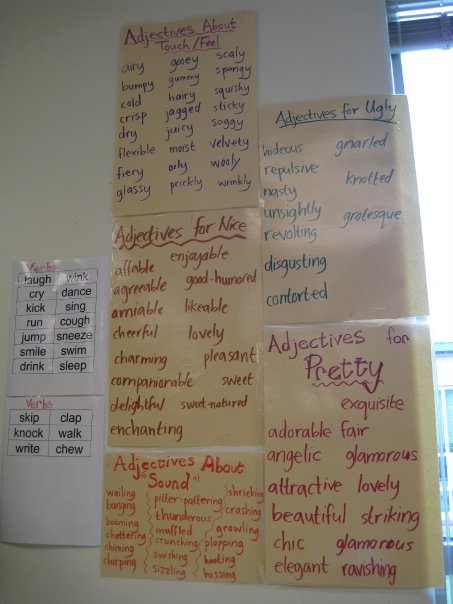 Adjectives About
Touch/Feel
airy gooey scaly
bumpy gummy spongy
cold hairy squishy
crisp jagged sticky
dry juicy soggy
flexible moist velvety
fiery oily wooly
glassy prickly wrinkly
Adjectives for Ugly
hideous gnarled
repulsive
nasty knotted
unsightly grotesque
revolting
disgusting
contorted
Adjectives for Nice
affable enjoyable
agreeable good-humored
amiable likeable
cheerful lovely
charming pleasant
companionable sweet
delightful sweet-natured
enchanting
Verbs
laugh wink
cry dance
kick sing
run cough
jump sneeze
smile swim
drink sleep
Verbs
skip clap
knock walk
write chew
Adjectives for
Pretty
exquisite
adorable fair
angelic glamorous
attractive lovely
beautiful striking
chic glamorous
elegant ravishing
Adjectives About
"Sound"
wailing pitter-pattering shrieking
banging thunderous crashing
booming muffled growling
chattering crunching plopping
chiming swishing hooting
chirping sizzling hissing